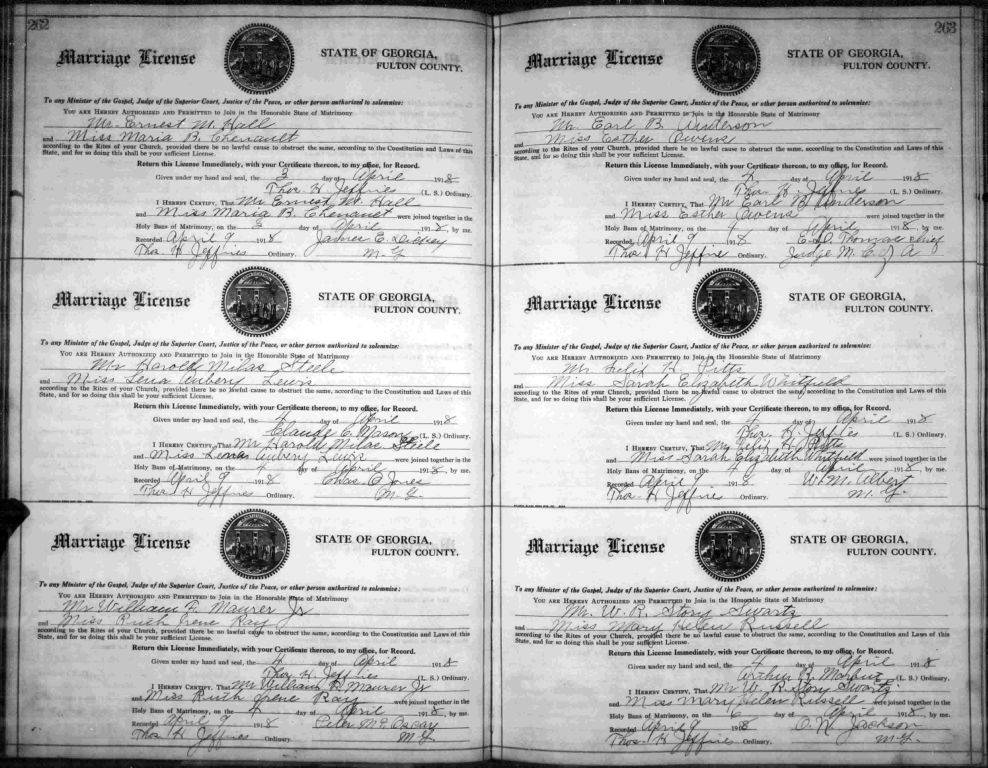 262
Marriage License
STATE OF GEORGIA,
FULTON COUNTY.
To any Minister of the Gospel, Judge of the Superior Court, Justice of the Peace, or other person authorized to solemnize:
YOU ARE HEREBY AUTHORIZED AND PERMITTED to Join in the Honorable State of Matrimony
Mr. Ernest M. Hall
and Miss Maria B. Chenault
according to the Rites of your Church, provided there be no lawful cause to obstruct the same, according to the Constitution and Laws of this
State, and for so doing this shall be your sufficient License.
Return this License Immediately, with your Certificate thereon, to my office, for Record.
Given under my hand and seal, the 3 day of April 1918
Thos. H. Jeffries (L. S.) Ordinary.
I HEREBY CERTIFY, That Mr Ernest M. Hall
and Miss Maria B. Chenault were joined together in the
Holy Bans of Matrimony, on the 3 day of April 1918, by me.
Recorded April 9 1918 James E. Dickey
Thos H Jeffries Ordinary. M. G.
Marriage License
STATE OF GEORGIA,
FULTON COUNTY.
To any Minister of the Gospel, Judge of the Superior Court, Justice of the Peace, or other person authorized to solemnize:
YOU ARE HEREBY AUTHORIZED AND PERMITTED to Join in the Honorable State of Matrimony
Mr Harold Milas Steele
and Miss Lena Aubery Lewis
according to the Rites of your Church, provided there be no lawful cause to obstruct the same, according to the Constitution and Laws of this
State, and for so doing this shall be your sufficient License.
Return this License Immediately, with your Certificate thereon, to my office, for Record.
Given under my hand and seal, the 4 day of April 1918
Claude C. Mason (L. S.) Ordinary.
I HEREBY CERTIFY, That Mr Harold Milas Steele
and Miss Lena Aubery Lewis were joined together in the
Holy Bans of Matrimony, on the 4 day of April 1918, by me.
Recorded April 9 1918 Chas. O. Jones
Thos H Jeffries Ordinary. M. G.
Marriage License
STATE OF GEORGIA,
FULTON COUNTY.
To any Minister of the Gospel, Judge of the Superior Court, Justice of the Peace, or other person authorized to solemnize:
YOU ARE HEREBY AUTHORIZED AND PERMITTED to Join in the Honorable State of Matrimony
Mr William P. Maurer Jr
and Miss Ruth Irene Ray
according to the Rites of your Church, provided there be no lawful cause to obstruct the same, according to the Constitution and Laws of this
State, and for so doing this shall be your sufficient License.
Return this License Immediately, with your Certificate thereon, to my office, for Record.
Given under my hand and seal, the 4 day of April 1918
Thos H. Jeffries (L. S.) Ordinary.
I HEREBY CERTIFY, That Mr William P. Maurer Jr
and Miss Ruth Irene Ray were joined together in the
Holy Bans of Matrimony, on the 4 day of April 1918, by me.
Recorded April 9 1918 Peter
Thos H Jeffries Ordinary. M. G.
263
Marriage License
STATE OF GEORGIA,
FULTON COUNTY.
To any Minister of the Gospel, Judge of the Superior Court, Justice of the Peace, or other person authorized to solemnize:
YOU ARE HEREBY AUTHORIZED AND PERMITTED to Join in the Honorable State of Matrimony
Mr. Earl B. Anderson
and Miss Esther Owens
according to the Rites of your Church, provided there be no lawful cause to obstruct the same, according to the Constitution and Laws of this
State, and for so doing this shall be your sufficient License.
Return this License Immediately, with your Certificate thereon, to my office, for Record.
Given under my hand and seal, the 4 day of April 1918
Thos. H. Jeffries (L. S.) Ordinary.
I HEREBY CERTIFY, That Mr Earl B. Anderson
and Miss Esther Owens were joined together in the
Holy Bans of Matrimony, on the 4 day of April 1918, by me.
Recorded April 9 1918 Thomas Chief
Thos H Jeffries Ordinary. Judge M. C. of A
Marriage License
STATE OF GEORGIA,
FULTON COUNTY.
To any Minister of the Gospel, Judge of the Superior Court, Justice of the Peace, or other person authorized to solemnize:
YOU ARE HEREBY AUTHORIZED AND PERMITTED to Join in the Honorable State of Matrimony
Mr Felix H. Pitts
and Miss Sarah Elizabeth Whitfield
according to the Rites of your Church, provided there be no lawful cause to obstruct the same, according to the Constitution and Laws of this
State, and for so doing this shall be your sufficient License.
Return this License Immediately, with your Certificate thereon, to my office, for Record.
Given under my hand and seal, the 4 day of April 1918
Thos. H. Jeffries (L. S.) Ordinary.
I HEREBY CERTIFY, That Mr Felix H. Pitts
and Miss Sarah Elizabeth Whitfield were joined together in the
Holy Bans of Matrimony, on the 4 day of April 1918, by me.
Recorded April 9 1918 W. M. Albert
Thos. H Jeffries Ordinary. M. G.
Marriage License
STATE OF GEORGIA,
FULTON COUNTY.
To any Minister of the Gospel, Judge of the Superior Court, Justice of the Peace, or other person authorized to solemnize:
YOU ARE HEREBY AUTHORIZED AND PERMITTED to Join in the Honorable State of Matrimony
Mr. W. R. Story Swartz
and Miss Mary Helen Russell
according to the Rites of your Church, provided there be no lawful cause to obstruct the same, according to the Constitution and Laws of this
State, and for so doing this shall be your sufficient License.
Return this License Immediately, with your Certificate thereon, to my office, for Record.
Given under my hand and seal, the 4 day of April 1918
Arthur R. Marbut (L. S.) Ordinary.
I HEREBY CERTIFY, That Mr W. R. Story Swartz
and Miss Mary Helen Russell were joined together in the
Holy Bans of Matrimony, on the 6 day of April 1918, by me.
Recorded April 9 1918 O. N. Jackson
Thos. H Jeffries Ordinary. M. G.